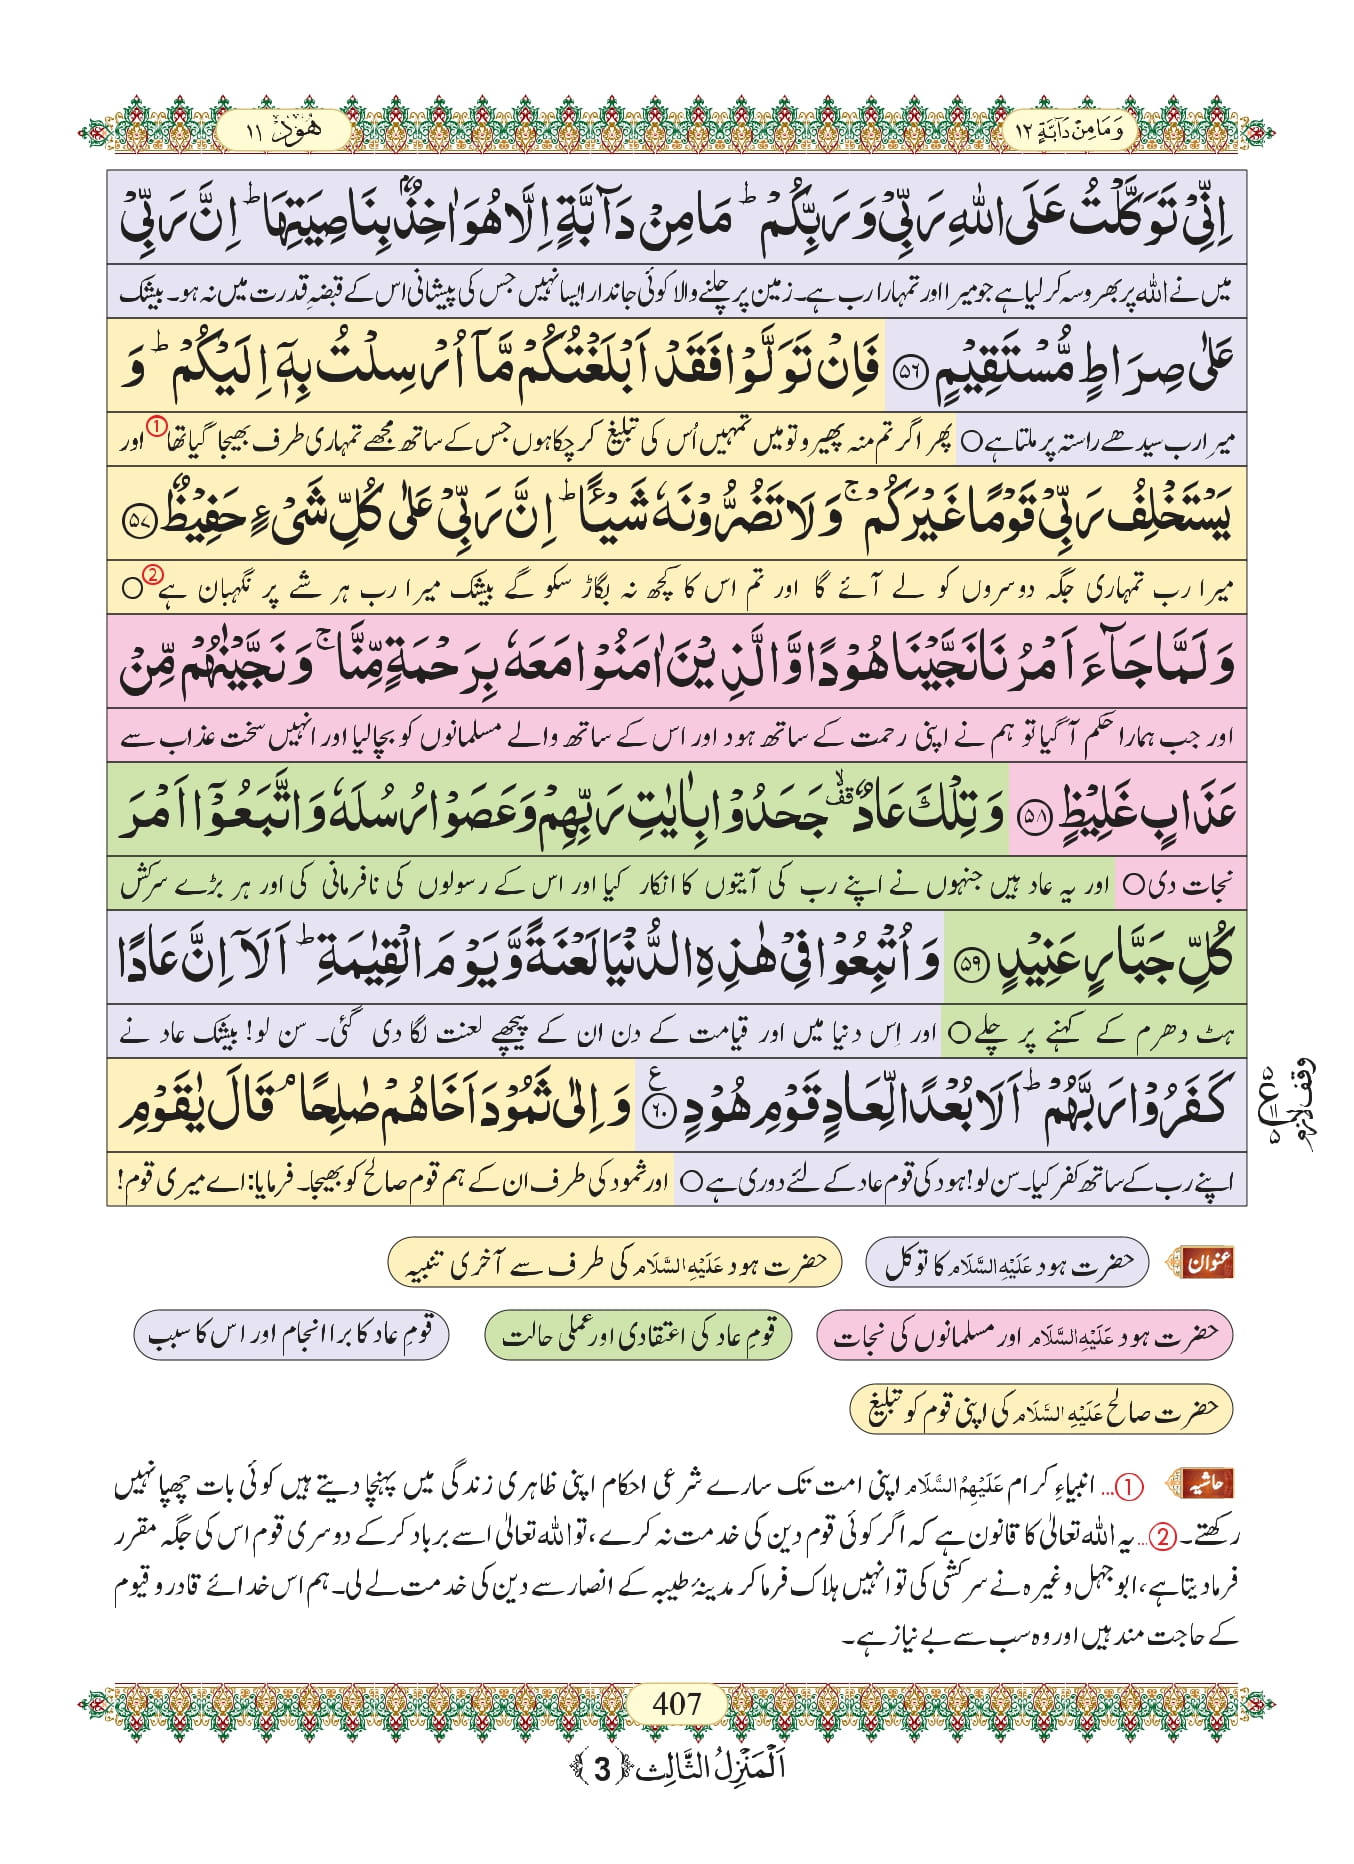 وَمَا مِنْ دَآبَّةٍ ١٢
هُوْد ١١
اِنِّیْ تَوَكَّلْتُ عَلَى اللّٰهِ رَبِّیْ وَ رَبِّكُمْؕ-مَا مِنْ دَآبَّةٍ اِلَّا هُوَ اٰخِذٌۢ بِنَاصِیَتِهَاؕ-اِنَّ رَبِّیْ
میں نے اللہ پر بھروسہ کرلیا ہے جو میرا اور تمہارا رب ہے۔ زمین پر چلنے والا کوئی جاندار ایسا نہیں جس کی پیشانی اس کے قبضہِ قدرت میں نہ ہو۔ بیشک
عَلٰى صِرَاطٍ مُّسْتَقِیْمٍ ۝۵۶ فَاِنْ تَوَلَّوْا فَقَدْ اَبْلَغْتُكُمْ مَّاۤ اُرْسِلْتُ بِهٖۤ اِلَیْكُمْؕ-وَ
میرا رب سیدھے راستہ پر ملتا ہے ○ پھر اگر تم منہ پھیرو تو میں تمہیں اُس کی تبلیغ کرچکا ہوں جس کے ساتھ مجھے تمہاری طرف بھیجا گیا تھا ① اور
یَسْتَخْلِفُ رَبِّیْ قَوْمًا غَیْرَكُمْۚ-وَ لَا تَضُرُّوْنَهٗ شَیْــٴًـاؕ-اِنَّ رَبِّیْ عَلٰى كُلِّ شَیْءٍ حَفِیْظٌ ۝۵۷
میرا رب تمہاری جگہ دوسروں کو لے آئے گا اور تم اس کا کچھ نہ بگاڑ سکو گے بیشک میرا رب ہر شے پر نگہبان ہے ② ○
وَ لَمَّا جَآءَ اَمْرُنَا نَجَّیْنَا هُوْدًا وَّ الَّذِیْنَ اٰمَنُوْا مَعَهٗ بِرَحْمَةٍ مِّنَّاۚ-وَ نَجَّیْنٰهُمْ مِّنْ
اور جب ہمارا حکم آگیا تو ہم نے اپنی رحمت کے ساتھ ہود اور اس کے ساتھ والے مسلمانوں کو بچالیا اور انہیں سخت عذاب سے
عَذَابٍ غَلِیْظٍ ۝۵۸ وَ تِلْكَ عَادٌ ﳜ جَحَدُوْا بِاٰیٰتِ رَبِّهِمْ وَ عَصَوْا رُسُلَهٗ وَ اتَّبَعُوْۤا اَمْرَ
نجات دی ○ اور یہ عاد ہیں جنہوں نے اپنے رب کی آیتوں کا انکار کیا اور اس کے رسولوں کی نافرمانی کی اور ہر بڑے سرکش
كُلِّ جَبَّارٍ عَنِیْدٍ ۝۵۹ وَ اُتْبِعُوْا فِیْ هٰذِهِ الدُّنْیَا لَعْنَةً وَّ یَوْمَ الْقِیٰمَةِؕ-اَلَاۤ اِنَّ عَادًا
ہٹ دھرم کے کہنے پر چلے ○ اور اِس دنیا میں اور قیامت کے دن ان کے پیچھے لعنت لگا دی گئی۔ سن لو! بیشک عاد نے
كَفَرُوْا رَبَّهُمْؕ-اَلَا بُعْدًا لِّعَادٍ قَوْمِ هُوْدٍ ۝۶۰ ع وَ اِلٰى ثَمُوْدَ اَخَاهُمْ صٰلِحًاۘ-قَالَ یٰقَوْمِ
وقف لازم
اپنے رب کے ساتھ کفر کیا۔ سن لو! ہود کی قوم عاد کے لئے دوری ہے ○ اور ثمود کی طرف ان کے ہم قوم صالح کو بھیجا۔ فرمایا: اے میری قوم!
عنوان حضرت ہود عَلَیْهِ السَّلَام کا توکل حضرت ہود عَلَیْهِ السَّلَام کی طرف سے آخری تنبیہ
حضرت ہود عَلَیْهِ السَّلَام اور مسلمانوں کی نجات قومِ عاد کی اعتقادی اور عملی حالت قومِ عاد کا برا انجام اور اس کا سبب
حضرت صالح عَلَیْهِ السَّلَام کی اپنی قوم کو تبلیغ
حاشیہ ①… انبیاءِ کرام عَلَیْهِمُ السَّلَام اپنی امت تک سارے شرعی احکام اپنی ظاہری زندگی میں پہنچا دیتے ہیں کوئی بات چھپا نہیں
رکھتے۔ ②… یہ اللہ تعالیٰ کا قانون ہے کہ اگر کوئی قوم دین کی خدمت نہ کرے، تو اللہ تعالیٰ اسے برباد کرکے دوسری قوم اس کی جگہ مقرر
فرمادیتا ہے، ابوجہل وغیرہ نے سرکشی کی تو انہیں ہلاک فرما کر مدینۂ طیبہ کے انصار سے دین کی خدمت لے لی۔ ہم اس خدائے قادر و قیوم
کے حاجت مند ہیں اور وہ سب سے بے نیاز ہے۔
407
اَلْمَنْزِلُ الثَّالِث ﴿3﴾